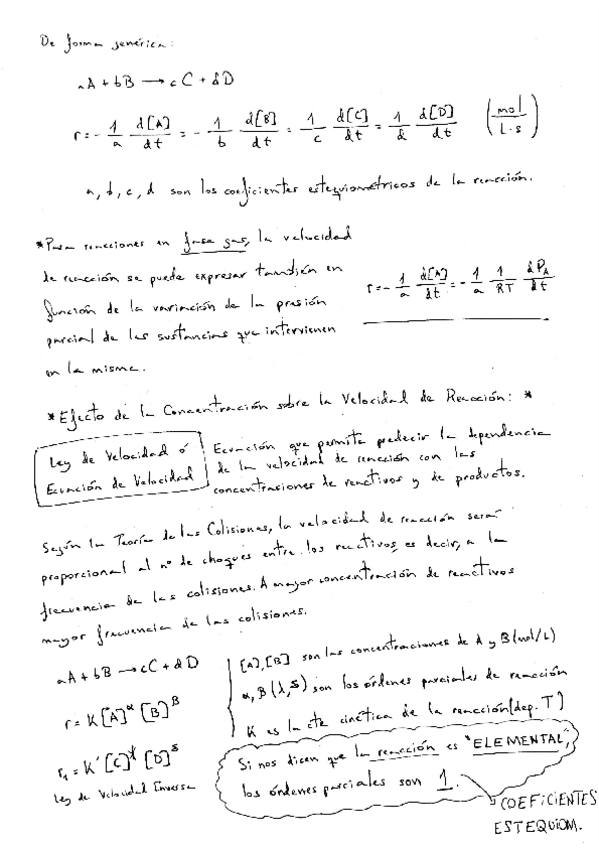 De forma genérica:
aA + bB → cC + dD
r = - 1/a d[A]/dt = - 1/b d[B]/dt = 1/c d[C]/dt = 1/d d[D]/dt (mol/L·s)
a, b, c, d son los coeficientes estequiométricos de la reacción.
*Para reacciones en fase gas, la velocidad
de reacción se puede expresar también en
función de la variación de la presión
parcial de las sustancias que intervienen
en la misma.
r = - 1/a d[A]/dt = - 1/a 1/RT dP_A/dt
*Efecto de la Concentración sobre la Velocidad de Reacción: *
Ley de Velocidad ó
Ecuación de Velocidad
Ecuación que permite predecir la dependencia
de la velocidad de reacción con las
concentraciones de reactivos y de productos.
Según la Teoría de las Colisiones, la velocidad de reacción será
proporcional al nº de choques entre los reactivos, es decir, a la
frecuencia de las colisiones. A mayor concentración de reactivos
mayor frecuencia de las colisiones.
aA + bB → cC + dD
r = K[A]^α [B]^β
r₁ = K'[C]^γ [D]^δ
Ley de Velocidad Inversa
[A], [B] son las concentraciones de A y B (mol/L)
α, β (γ, δ) son los órdenes parciales de reacción
K es la cte cinética de la reacción (dep. T)
Si nos dicen que la reacción es "ELEMENTAL",
los órdenes parciales son 1.
COEFICIENTES
ESTEQUIOM.